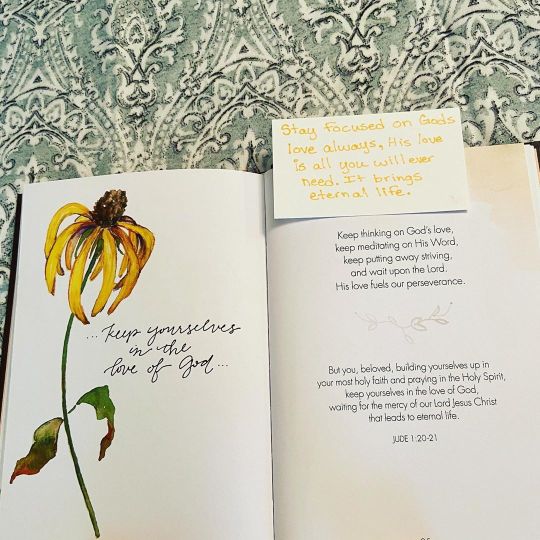 ... keep yourselves
in the
love of God...
Stay focused on Gods
love always, His love
is all you will ever
need. It brings
eternal life.
Keep thinking on God's love,
keep meditating on His Word,
keep putting away striving,
and wait upon the Lord.
His love fuels our perseverance.
But you, beloved, building yourselves up in
your most holy faith and praying in the Holy Spirit,
keep yourselves in the love of God,
waiting for the mercy of our Lord Jesus Christ
that leads to eternal life.
JUDE 1:20-21